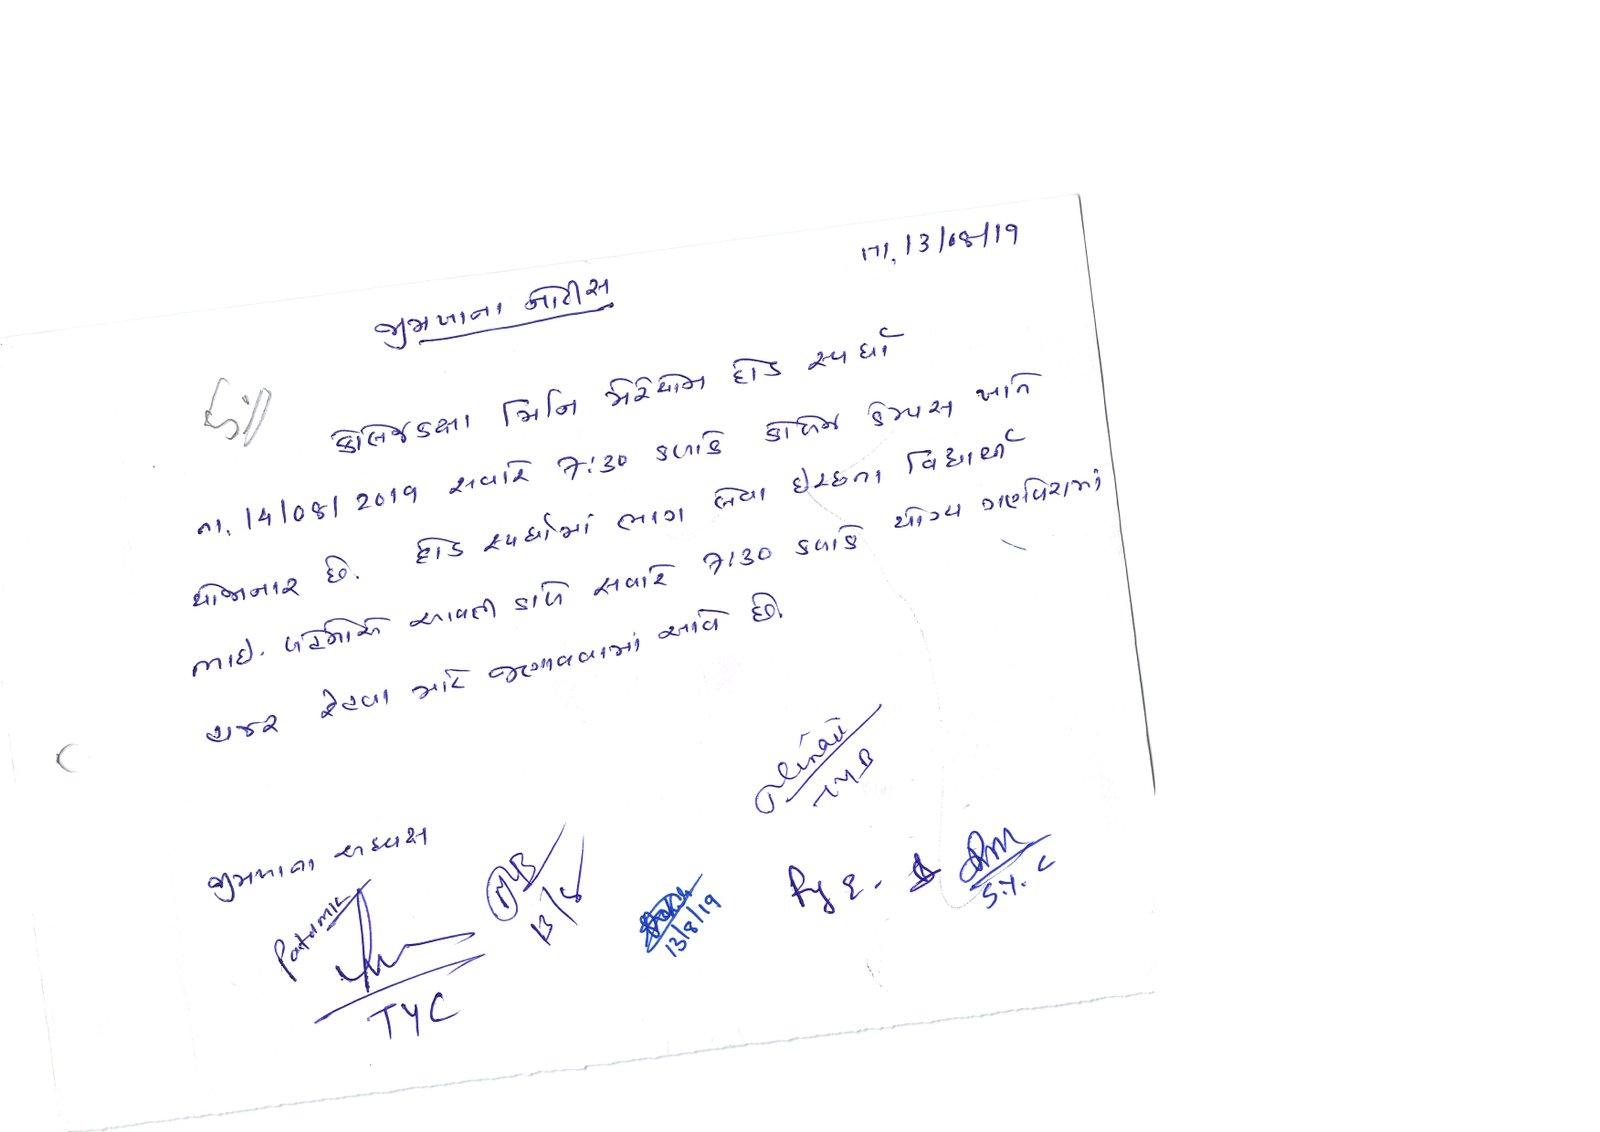 તા. 13/08/19
જીમખાના નોટીસ
કોલેજકક્ષા મિનિ મેરેથોન દોડ સ્પર્ધા
તા. 14/08/2019 સવારે 7:30 કલાકે કોલેજ કેમ્પસ ખાતે
યોજાનાર છે. દોડ સ્પર્ધામાં ભાગ લેવા ઇચ્છતા વિદ્યાર્થી
ભાઇ-બહેનોએ આવતી કાલે સવારે 7:30 કલાકે યોગ્ય ગણવેશમાં
હાજર રહેવા માટે જણાવવામાં આવે છે.
જીમખાના અધ્યક્ષ
TYB
13/8
13/8/19
S.Y. C
TYC